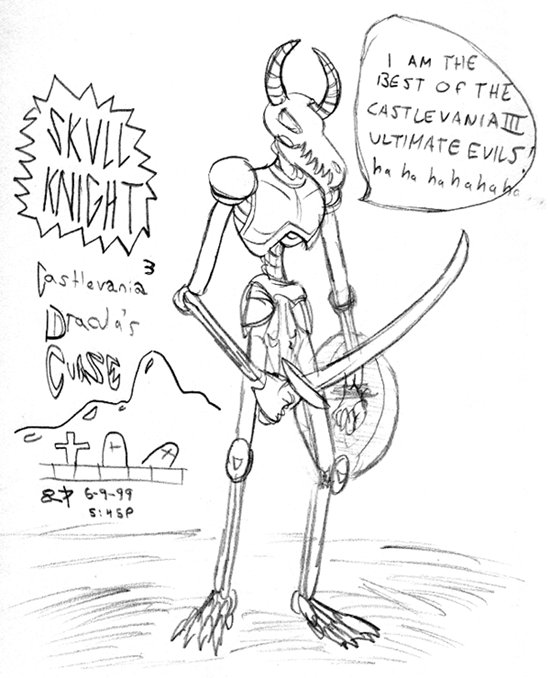 SKULL
KNIGHT
Castlevania 3
Dracula's
CURSE
6-9-99
5:45P
I AM THE
BEST OF THE
CASTLEVANIA III
ULTIMATE EVILS!
ha ha ha ha ha ha...